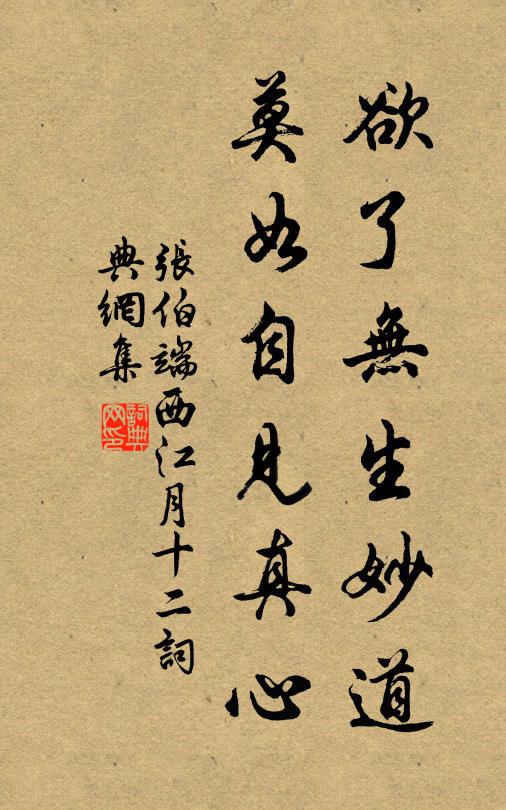 欲了無生妙道
莫如自見真心
張伯端西江月十二詞
典網集
詞典
网印